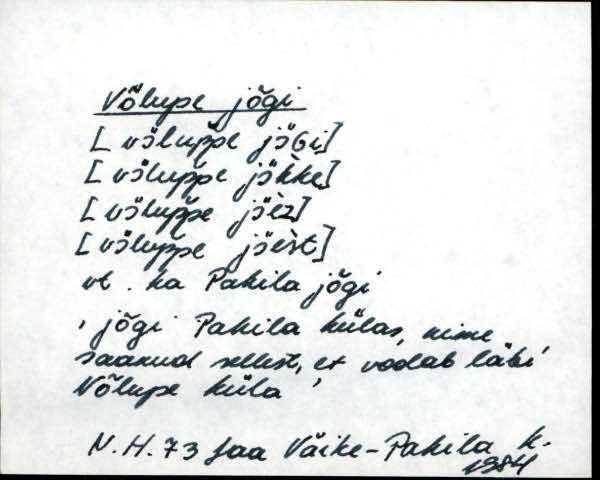 Võlupe jõgi
[völuppe jöGi]
[völuppe jökke]
[völuppe jöèz]
[völuppe jöèst]
vt. ka Pahila jõgi
, jõgi Pahila külas, nime
saanud sellest, et voolab läbi
Võlupe küla'
N.H. 73 Jaa Väike-Pahila k.
1984